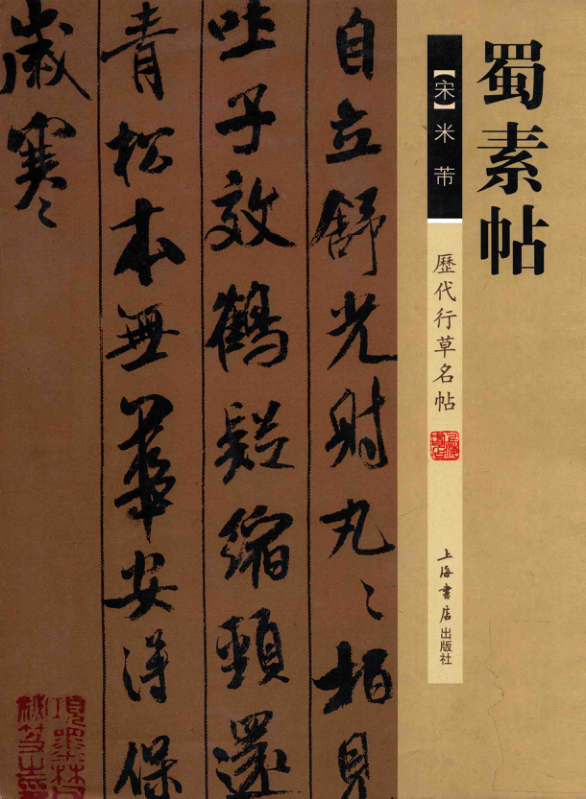 蜀素帖
【宋】米芾
歷代行草名帖
上海書店出版社
自立舒光射丸〻柏見
吐子效鶴疑縮頸還
青松本無華安得保
歲寒